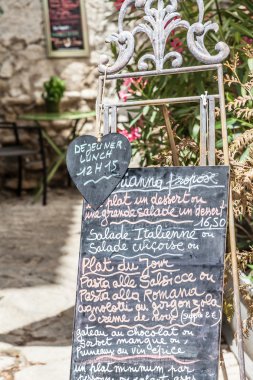 DEJEUNER
LUNCH
12H15
propose
plat un dessert ou
une grande salade un dessert
16,50
Salade Italienne ou
Salade niçoise ou
Plat du Jour
Pasta alle Salsicce ou
Pasta alla Romana
agnolotti au gorgonzola
crème de noix (supp 2€)
gateau au chocolat ou
sorbet mangue ou
Pruneau au vin épicé
un plat minimum par
ou salade